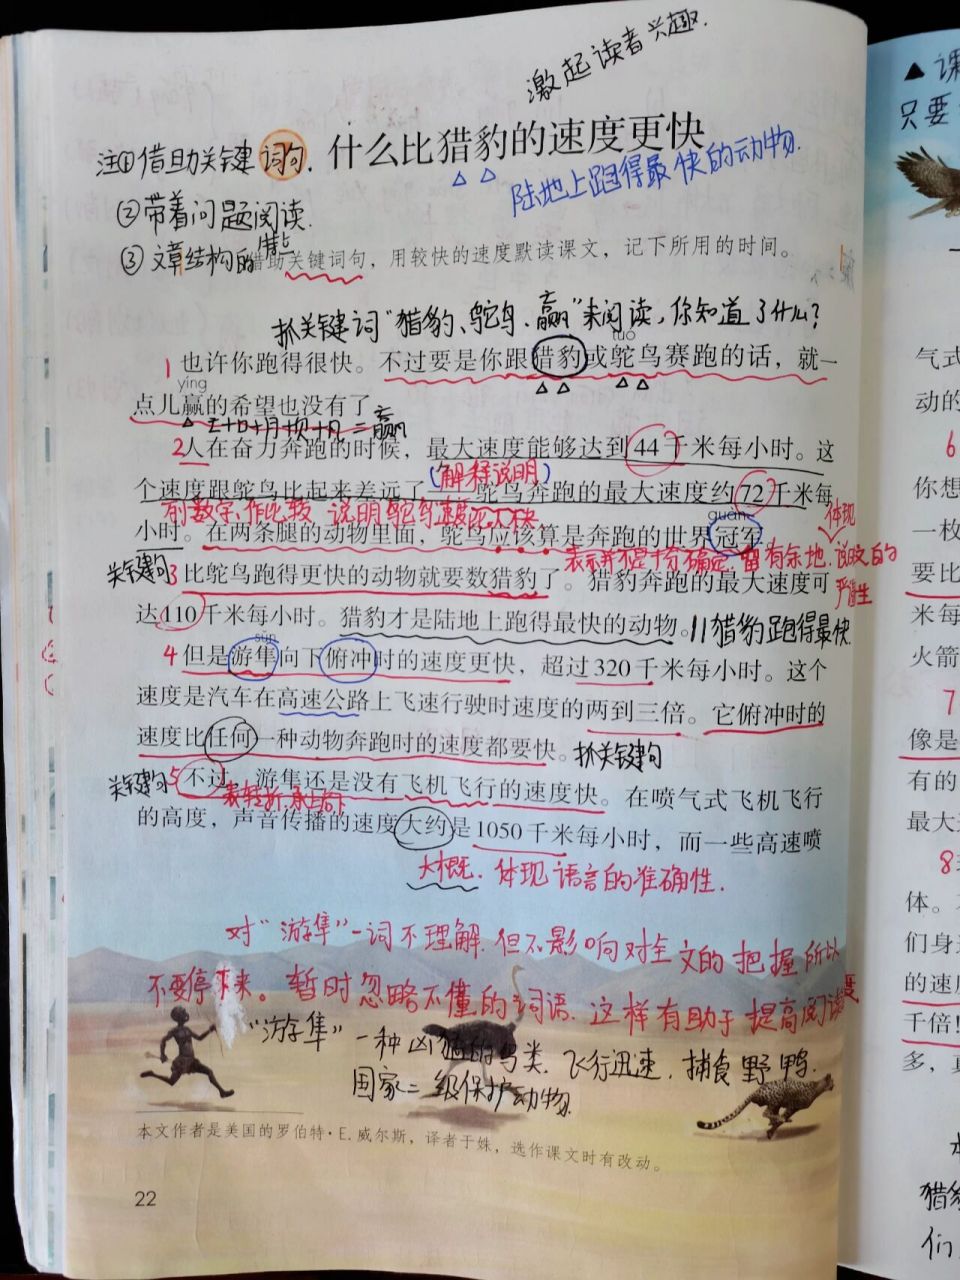 激起读者兴趣.
什么比猎豹的速度更快
注①借助关键词句.
陆地上跑得最快的动物.
②带着问题阅读.
③文章结构的特点
借助关键词句，用较快的速度默读课文，记下所用的时间。
抓关键词“猎豹、鸵鸟、赢”来阅读，你知道了什么？
tuó
1 也许你跑得很快。不过要是你跟猎豹或鸵鸟赛跑的话，就一
yíng
点儿赢的希望也没有了。
亡+口+月+贝+凡=赢
2 人在奋力奔跑的时候，最大速度能够达到44千米每小时。这
(解释说明)
个速度跟鸵鸟比起来差远了——鸵鸟奔跑的最大速度约72千米每
列数字、作比较 说明鸵鸟速度比人快
guàn
体现
小时。在两条腿的动物里面，鸵鸟应该算是奔跑的世界冠军。
表示并不是十分确定.留有余地.说明文的
严谨性
关键句
3 比鸵鸟跑得更快的动物就要数猎豹了。猎豹奔跑的最大速度可
达110千米每小时。猎豹才是陆地上跑得最快的动物。
猎豹跑得最快
sǔn
4 但是游隼向下俯冲时的速度更快，超过320千米每小时。这个
速度是汽车在高速公路上飞速行驶时速度的两到三倍。它俯冲时的
速度比任何一种动物奔跑时的速度都要快。
抓关键句
关键句
5 不过，游隼还是没有飞机飞行的速度快。在喷气式飞机飞行
表转折.承上启下
的高度，声音传播的速度大约是1050千米每小时，而一些高速喷
大概. 体现语言的准确性.
对“游隼”一词不理解.但不影响对全文的把握所以
不要停下来。暂时忽略不懂的词语.这样有助于提高阅读速度
“游隼” 一种凶猛的鸟类.飞行迅速.捕食野鸭.
国家二级保护动物.
本文作者是美国的罗伯特·E.威尔斯，译者于姝，选作课文时有改动。
22
▲课
只要
气式
动的
6
你想
一枚
要比
米每
火箭
7
像是
有的
最大
8
体。
们身
的速度
千倍！
多，真
猎豹
们